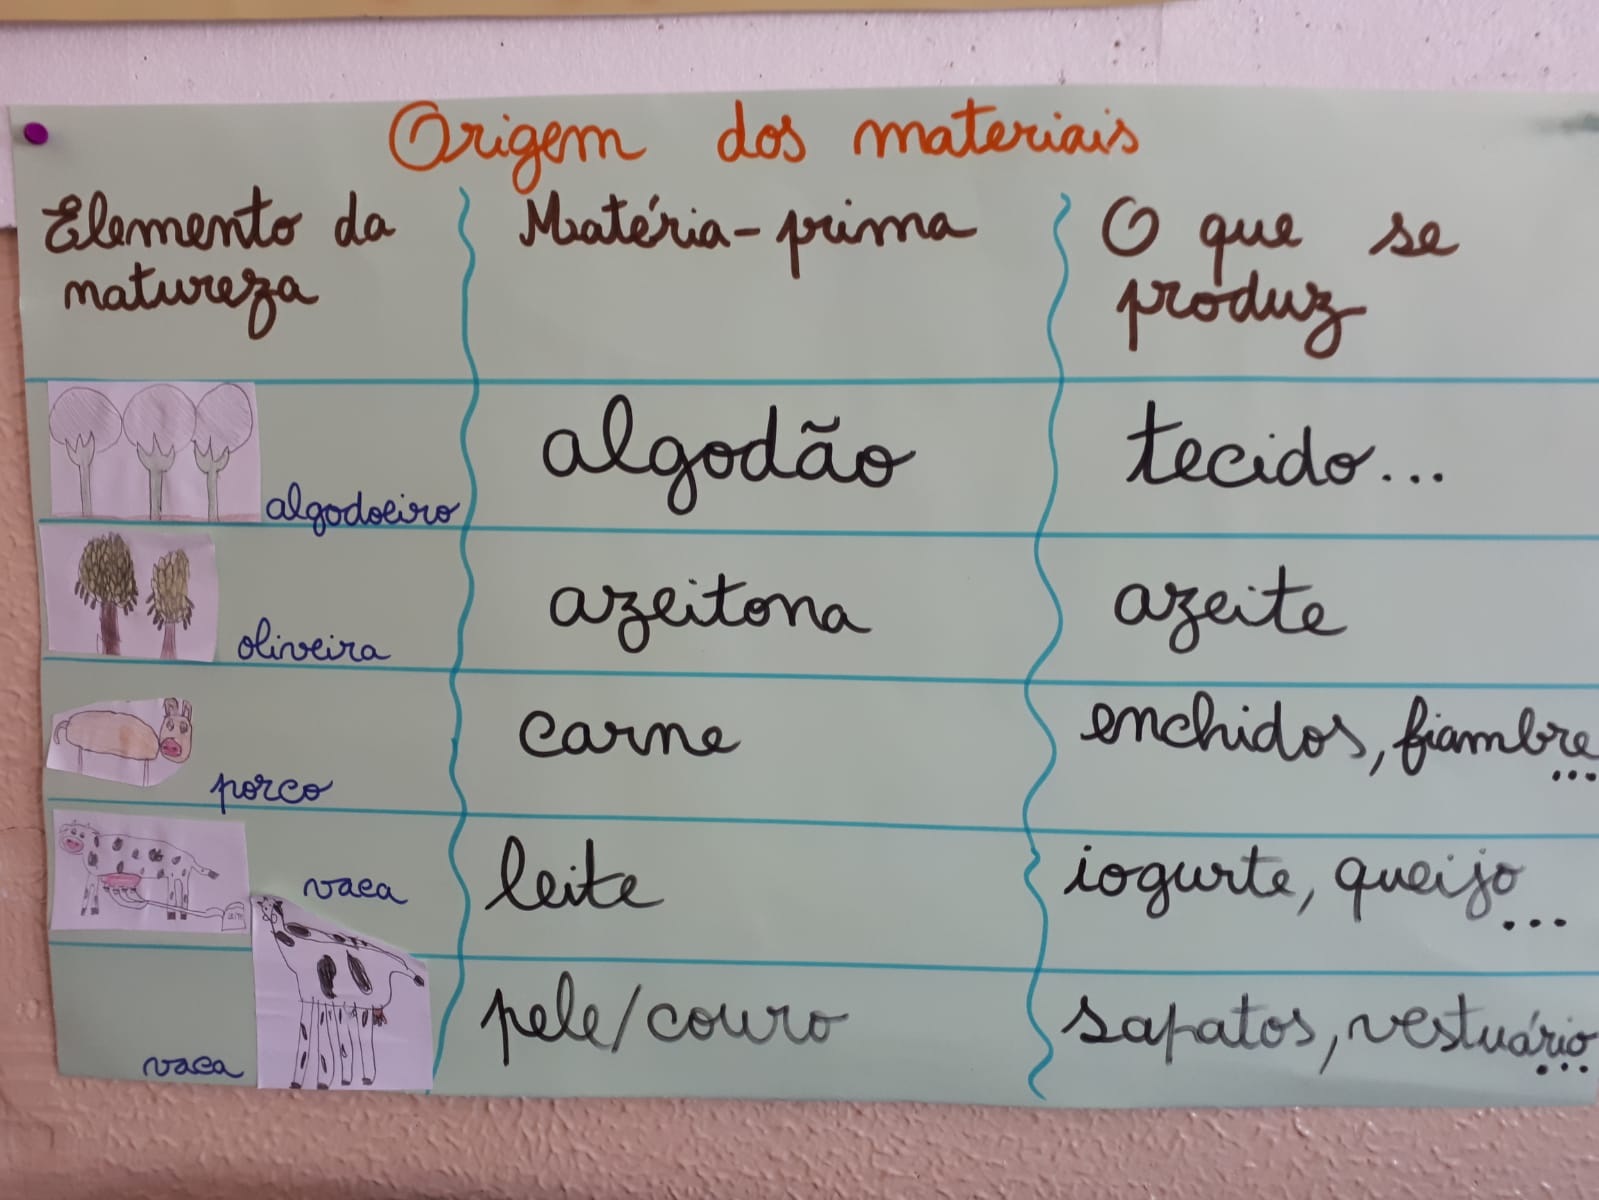 Origem dos materiais
Elemento da natureza
Matéria-prima
O que se produz
algodoeiro
algodão
tecido...
oliveira
azeitona
azeite
porco
carne
enchidos, fiambre...
vaca
leite
iogurte, queijo...
vaca
pele/couro
sapatos, vestuário...